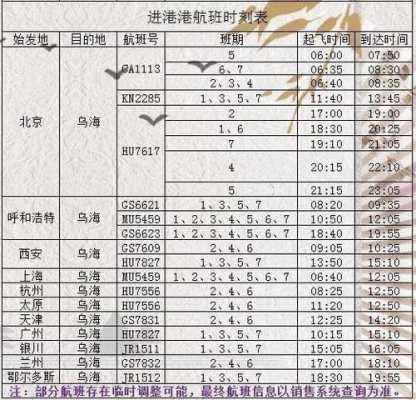 进港港航班时刻表
始发地 目的地 航班号 班期 起飞时间 到达时间
北京 乌海 CA1113 5 06:00 07:50
6、7 06:35 08:30
2、3、4 06:40 08:35
KN2285 1、3、5、7 11:40 13:45
HU7617 2 17:00 19:00
1、6 18:30 20:25
7 19:10 21:05
4 20:15 22:10
5 21:15 23:05
呼和浩特 乌海 GS6621 1、3、5、7 08:20 09:35
MU5459 1、2、3、4、5、6、7 10:50 12:05
GS6623 1、2、3、4、5、6、7 18:40 19:55
西安 乌海 GS7609 2、4、6 09:05 10:25
HU7827 1、3、5、7 13:50 15:10
上海 乌海 MU5459 1、2、3、4、5、6、7 06:40 12:05
杭州 乌海 HU7556 2、4、6 08:25 12:50
太原 乌海 HU7556 2、4、6 11:20 12:50
天津 乌海 GS7831 2、4、6 12:25 14:20
广州 乌海 HU7827 1、3、5、7 10:15 15:10
银川 乌海 JR1511 1、3、5、7 15:05 16:05
兰州 乌海 GS7832 2、4、6 17:00 18:10
鄂尔多斯 乌海 JR1512 1、3、5、7 18:30 19:55
注：部分航班存在临时调整可能，最终航班信息以销售系统查询为准。